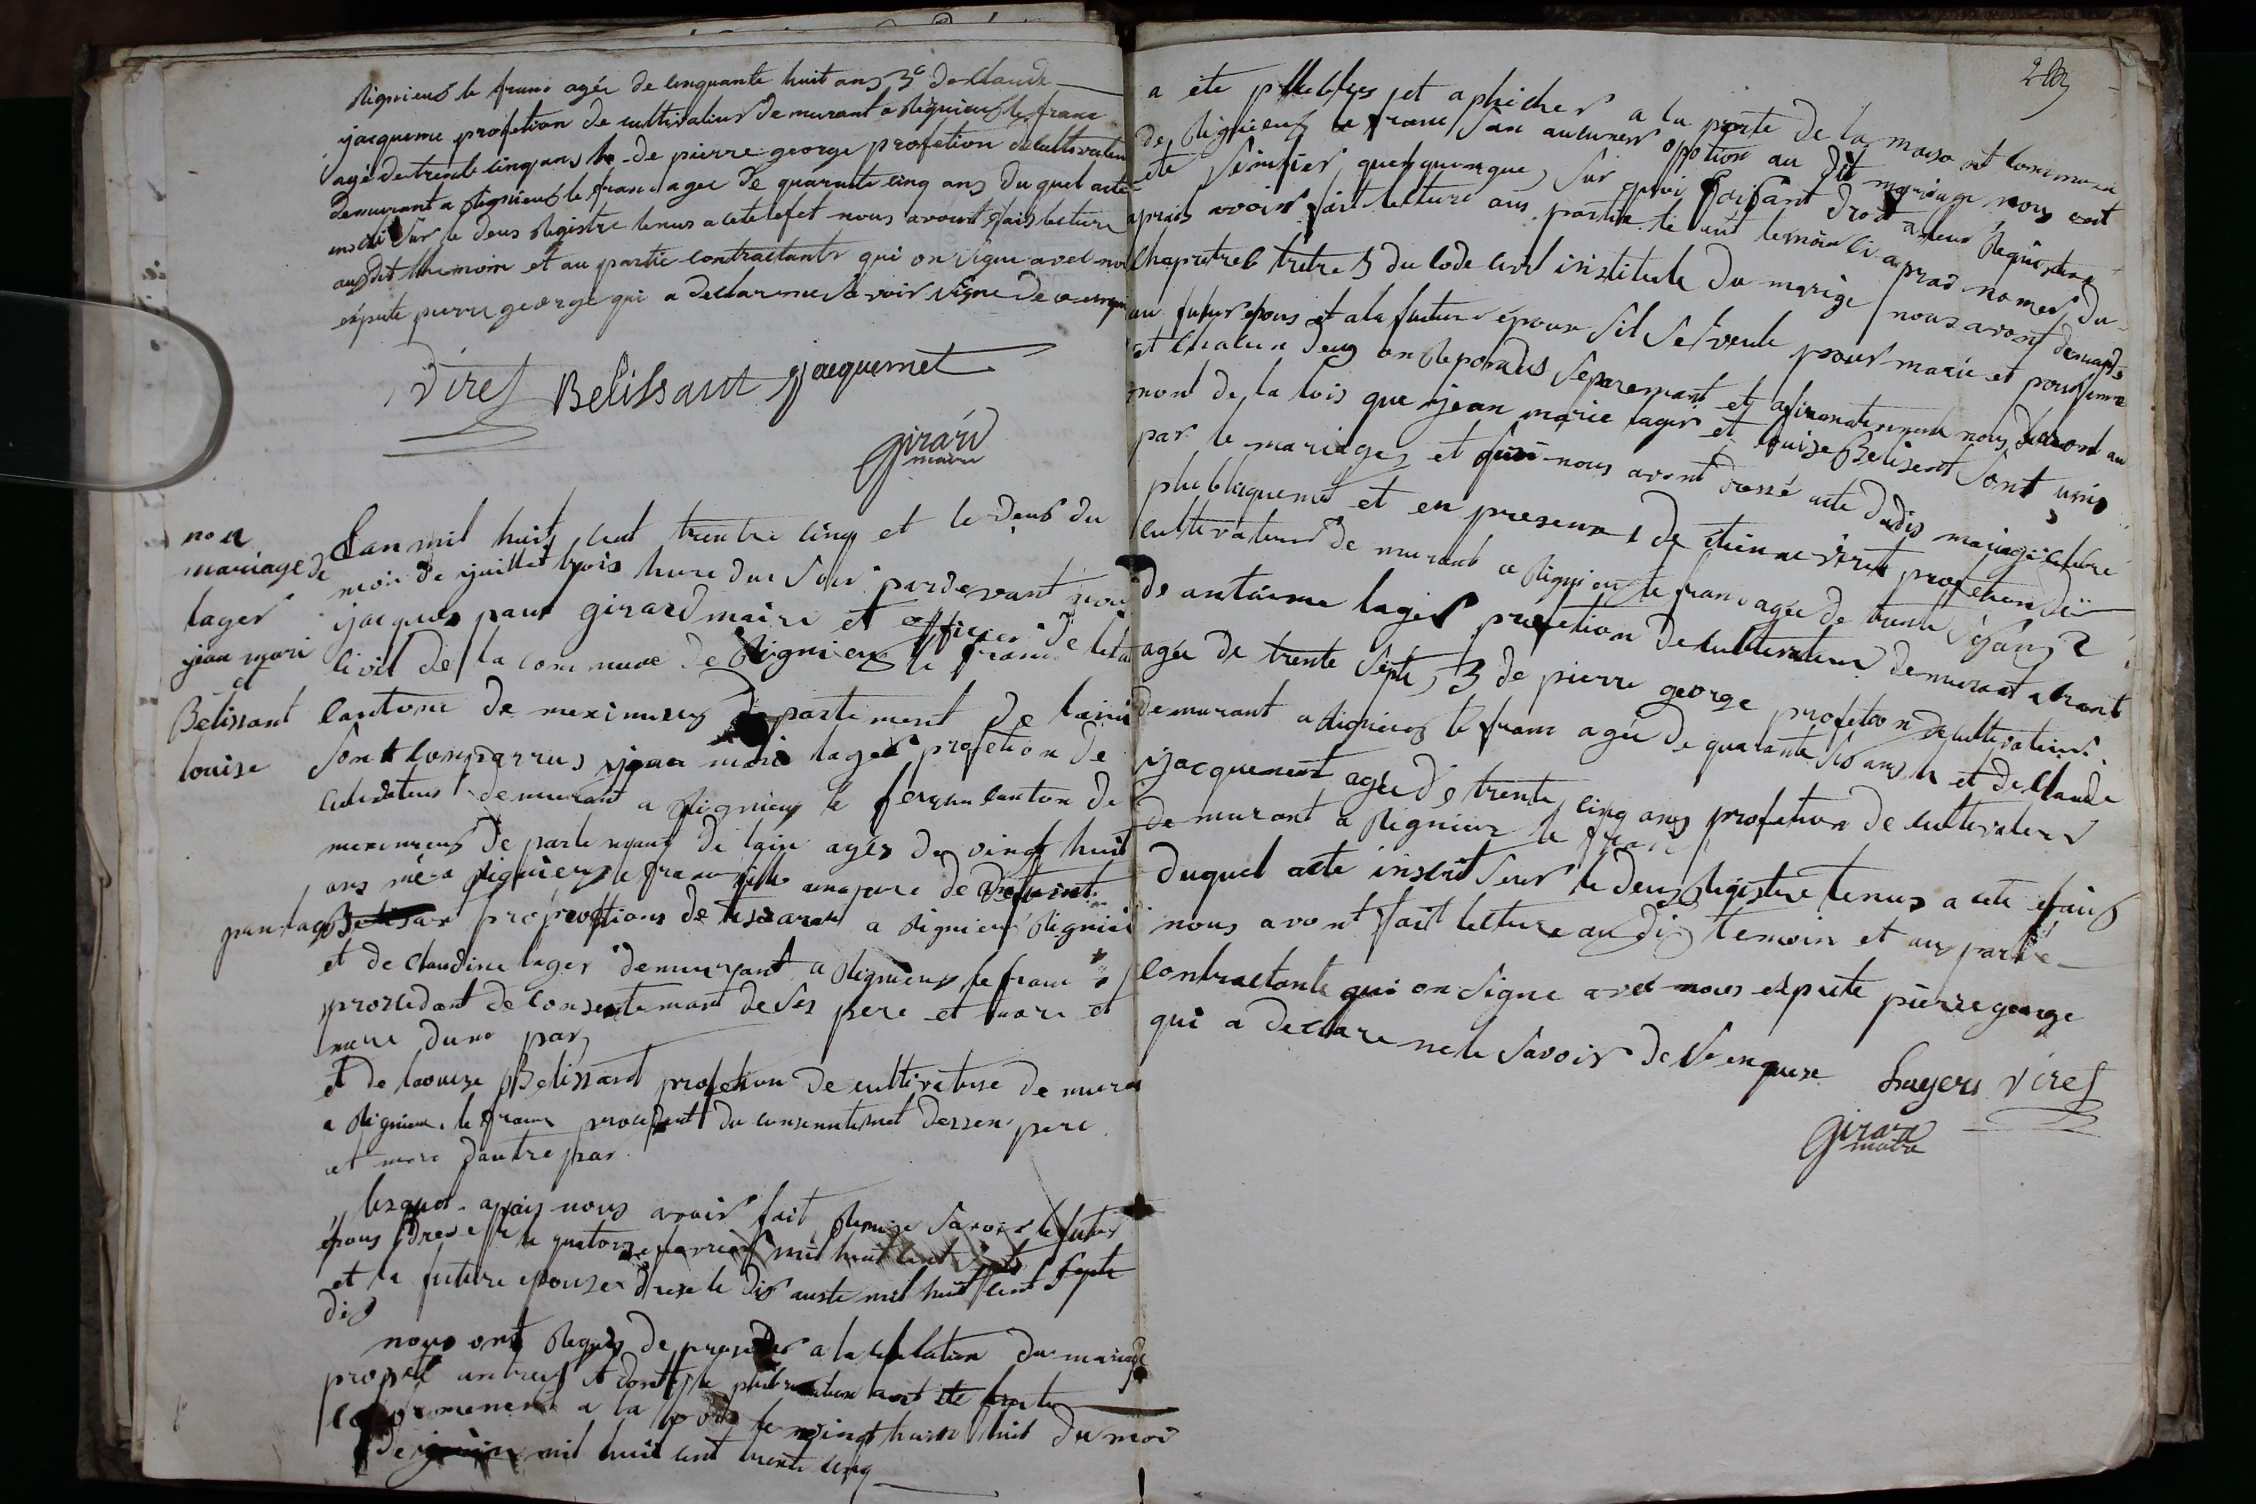 Rignieux le franc agée de cinquante huit ans 3e de Claude
jacqueme profetion de cultivateur demurant a Rignieux le franc
agé de trente cinq ans de pierre george profetion de cultivateur
demurant a Rignieux le franc agée de quarante cinq ans du quel acte
inscri sur le deus Registre tenus a cete efet nous avont fais lecture
aus dit temoin et au partie contractante qui on signe avec nou
exsepte pierre george qui a declarme savoir signe de
Viret Belissant jacquemet
girard
maire
no 11
mariage de
lager
jean mari
et
Belissant
louise
Lan mil huit cent trente cinq et le deus du
moi de juillet trois hure du soir pardevant nou
jacques paul girard maire et officier de letat
civil de la commune de Rignieux le franc
cantone de meximieux departement de lain
sont comparrus jean mari lager profetion de
cultivateur demurant a Rignieux le franc canton de
meximieux de partement de lain agés de vingt huit
ans né a Rignieux le franc fils majeure de defeint
jean lager Belisan profections de tisserant a Rignieux
et de Claudine lager demurant a Rignieux le franc
procedant de consentement de ses pere et mere et
mere dune par
et de laouize Belissant profetion de cultivateuse de mura
a Rignieux le franc procedant du consentement dessen pere
et mere dautre par
lesquel apais nous avoir fait Remize savoir le futur
épous drese le quatorze mil huit cent sept
et la future epouse drese le dis auste mil huit cent septe
dis
nous ont Requis de proceder a la celebration du mariage
projeté entreus et dont la publication ont été faite
conformement a la loi le vingt huit du moi
de juin mil huit cent trente cinq
a éte publies et aphicher a la porte de la maison commune
de Rignieux le franc san aucunes oppotion au dit mariage nous aint
éte sinifier quelquonque, sur quoi faisant droit a leur Requisitions
apraès avoir fait lecture aus partie te aut temoin ci apras nomes du
chapitre 6 titre 5 du code civil institule du marige nous avont demandé
au futur epous et ala future épouse sil se veule pour marie et pour femme
et chacun deus on Repondus séparemant et afirmativement nous declaront au
nom de la lois que jean marie lager et louise Belisent sont unis
par le mariages et nous avont dressé acte dudis mariage celebre
plubliquemt et en presence 1 de étienne viret profetion de
cultivateur de murant a Rignieux le franc agée de trente sis ans 2
de antoine lager profetion de cultivateur demurant a
agée de trente septe, 3 de pierre george profetion de cultivateur
demurant a Rignieux le franc agée de quarante sis ans 4 et de Claude
jacquement agée de trente cinq ans profetion de cultivateur
de murant a Rignieux le franc
duquel acte inscrit sur le deus Registre tenus a cete efais
nous avont fait lecture au dis temoin et au partie
contractante qui on signe avec nous exspete pierre george
qui a declare ne le savoir de se enquise
Lageru Viret
girard
maire